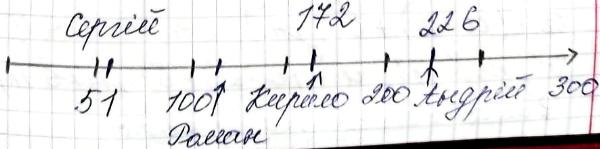 Сергій 172 226
51 100 Кирило 200 Андрій 300
Роман